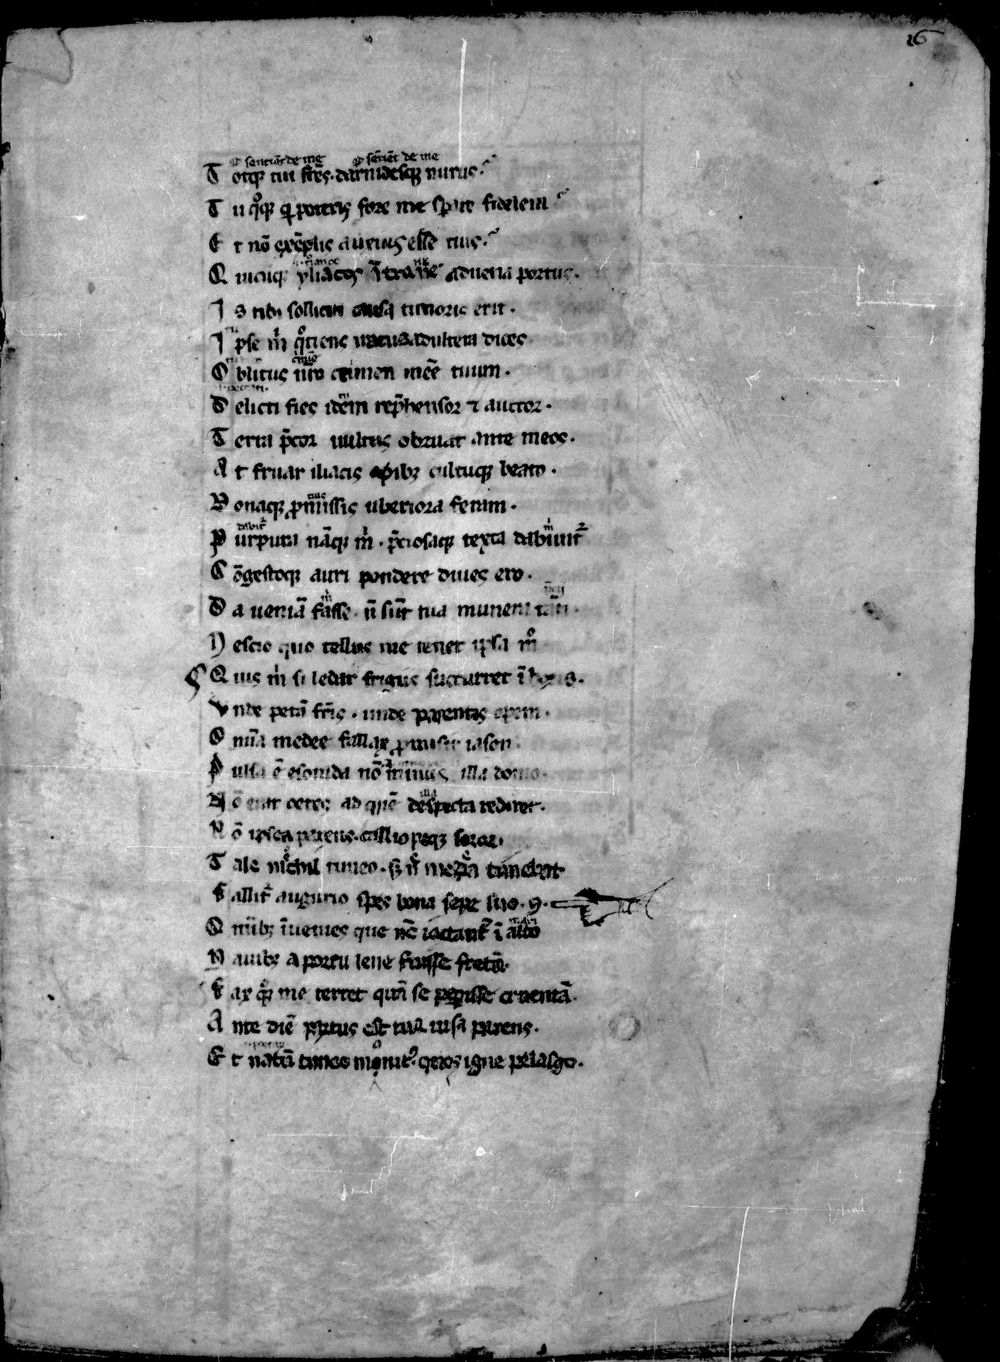 16
Totq tui frēs. dardnidesq nurus.
Tu qͦq qi poteris fore me sperare fidelem
Et nō exēplis anxius esse tuis.
Quicūq yliacos ītrauē aduena portus.
Is tibi solliciti causa timoris erit.
Ipse m̄ qͦtiens iratus adultera dices
Oblitus nr̄o crimen inēē tuum.
Delicti fies idē rep̄hensor ⁊ auctor.
Terra p̄cor uultus obruat ante meos.
At fruar iliacis opibꝫ cultuq beato.
Donaq ꝓmissis uberiora feram.
Purpura nāq m̄. p̄ciosaq texta dabunt᷑
Cōgestoq auri pondere diues ero.
Da ueniā fasse. n̄ sūt tua munera tāti.
Nescio quo tellus me tenet ipsa mͦ
Quis m̄ si ledar frigiis succurret ī horis.
Vnde petā fr̄is. unde parentis opem.
Omīa medee fallax ꝓmisit iason.
Pulsa ē esonida nō minus illa domo.
Nō erat oetes ad quē despecta rediret.
Nō ipsea parens. calliopeq soror.
Tale nichil timeo. sꝫ n̄ medea timebat
Fallit᷑ augurio spes bona sepe suo. 9.
Omībꝫ īuenies que nc̄ iactant᷑ ī alto
Nauibꝫ a portu lene fuisse fretū.
Fax qͦq me terret quā se peperisse cruentā.
Ante diē partus est tua uisa parens.
Et uatū timeo monit᷑ quos igne pelasgo.